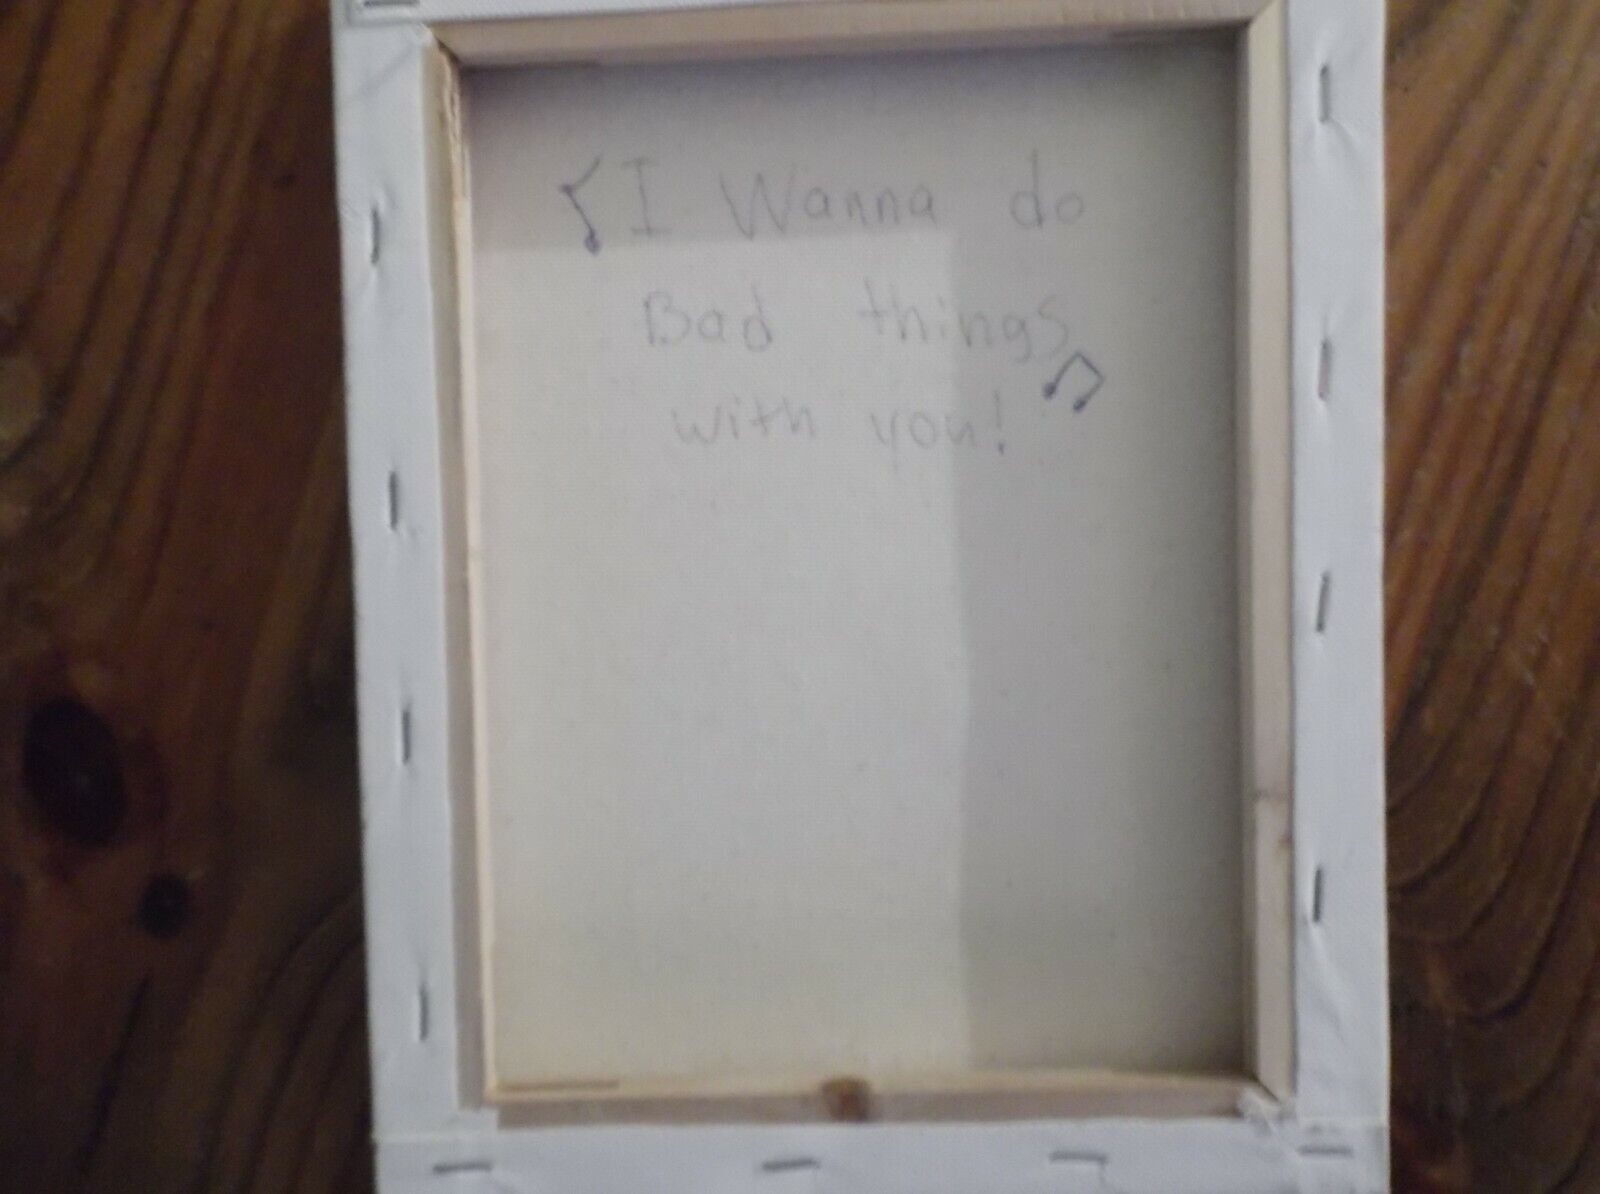 ♪ I Wanna do
Bad things
with you! ♫